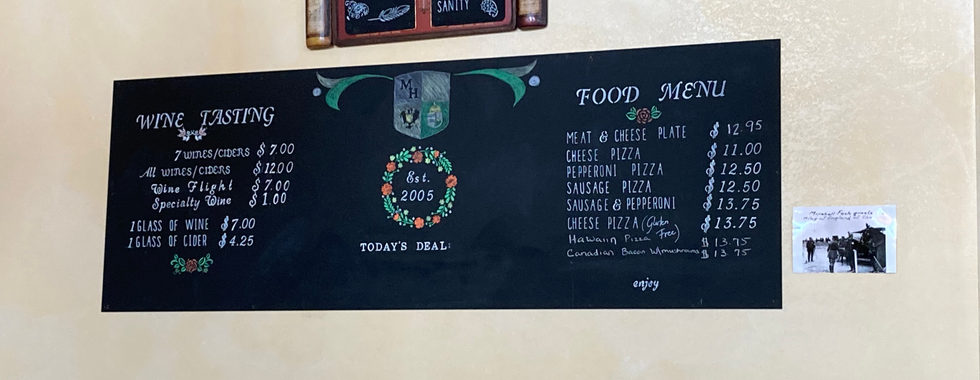 SANITY
WINE TASTING
7 WINES/CIDERS $7.00
All WINES/CIDERS $12.00
Wine Flight $7.00
Specialty Wine $1.00
1 GLASS OF WINE $7.00
1 GLASS OF CIDER $4.25
MH
Est.
2005
TODAY'S DEAL:
FOOD MENU
MEAT & CHEESE PLATE $12.95
CHEESE PIZZA $11.00
PEPPERONI PIZZA $12.50
SAUSAGE PIZZA $12.50
SAUSAGE & PEPPERONI $13.75
CHEESE PIZZA (Gluten Free) $13.75
Hawaiin Pizza $13.75
Canadian Bacon W/mushrooms $13.75
enjoy